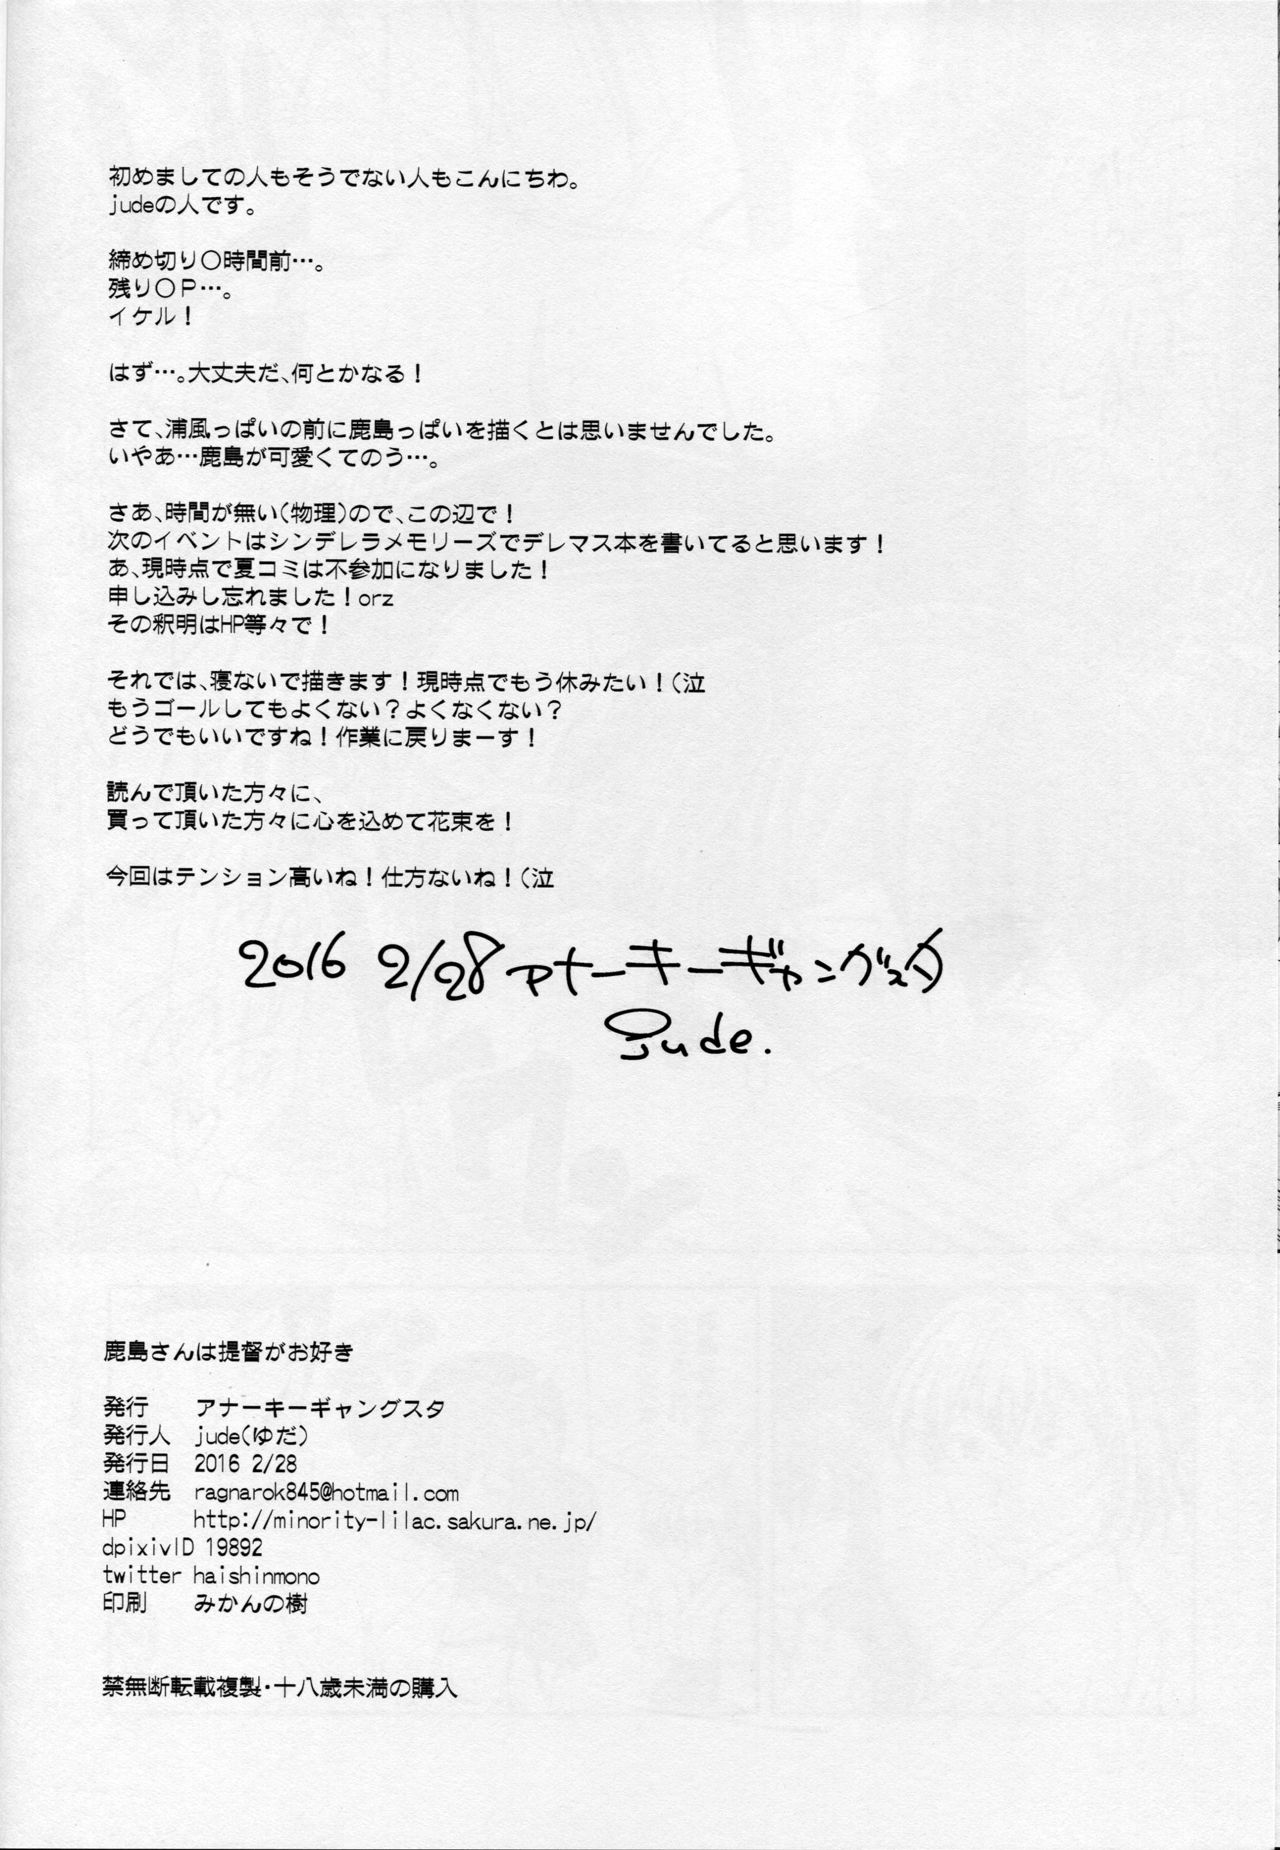 初めましての人もそうでない人もこんにちわ。
judeの人です。
締め切り〇時間前…。
残り〇Ｐ…。
イケル！
はず…。大丈夫だ、何とかなる！
さて、浦風っぱいの前に鹿島っぱいを描くとは思いませんでした。
いやあ…鹿島が可愛くてのう…。
さあ、時間が無い（物理）ので、この辺で！
次のイベントはシンデレラメモリーズでデレマス本を書いてると思います！
あ、現時点で夏コミは不参加になりました！
申し込みし忘れました！orz
その釈明はHP等々で！
それでは、寝ないで描きます！現時点でもう休みたい！（泣
もうゴールしてもよくない？よくなくない？
どうでもいいですね！作業に戻りまーす！
読んで頂いた方々に、
買って頂いた方々に心を込めて花束を！
今回はテンション高いね！仕方ないね！（泣
2016 2/28 アナーキーギャングスタ
jude.
鹿島さんは提督がお好き
発行 アナーキーギャングスタ
発行人 jude（ゆだ）
発行日 2016 2/28
連絡先 ragnarok845@hotmail.com
HP http://minority-lilac.sakura.ne.jp/
dpixivID 19892
twitter haishinmono
印刷 みかんの樹
禁無断転載複製・十八歳未満の購入